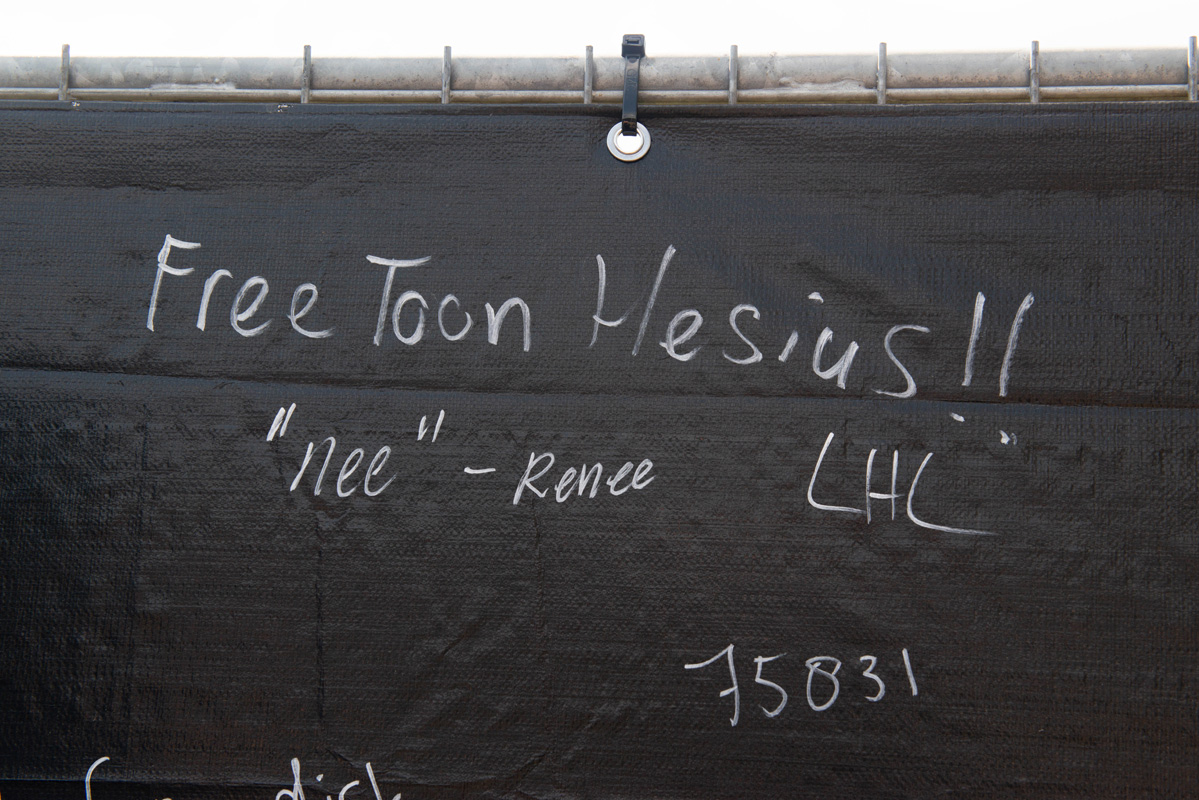 Free Toon Hesius!!
"nee" - Renee LHL
75831